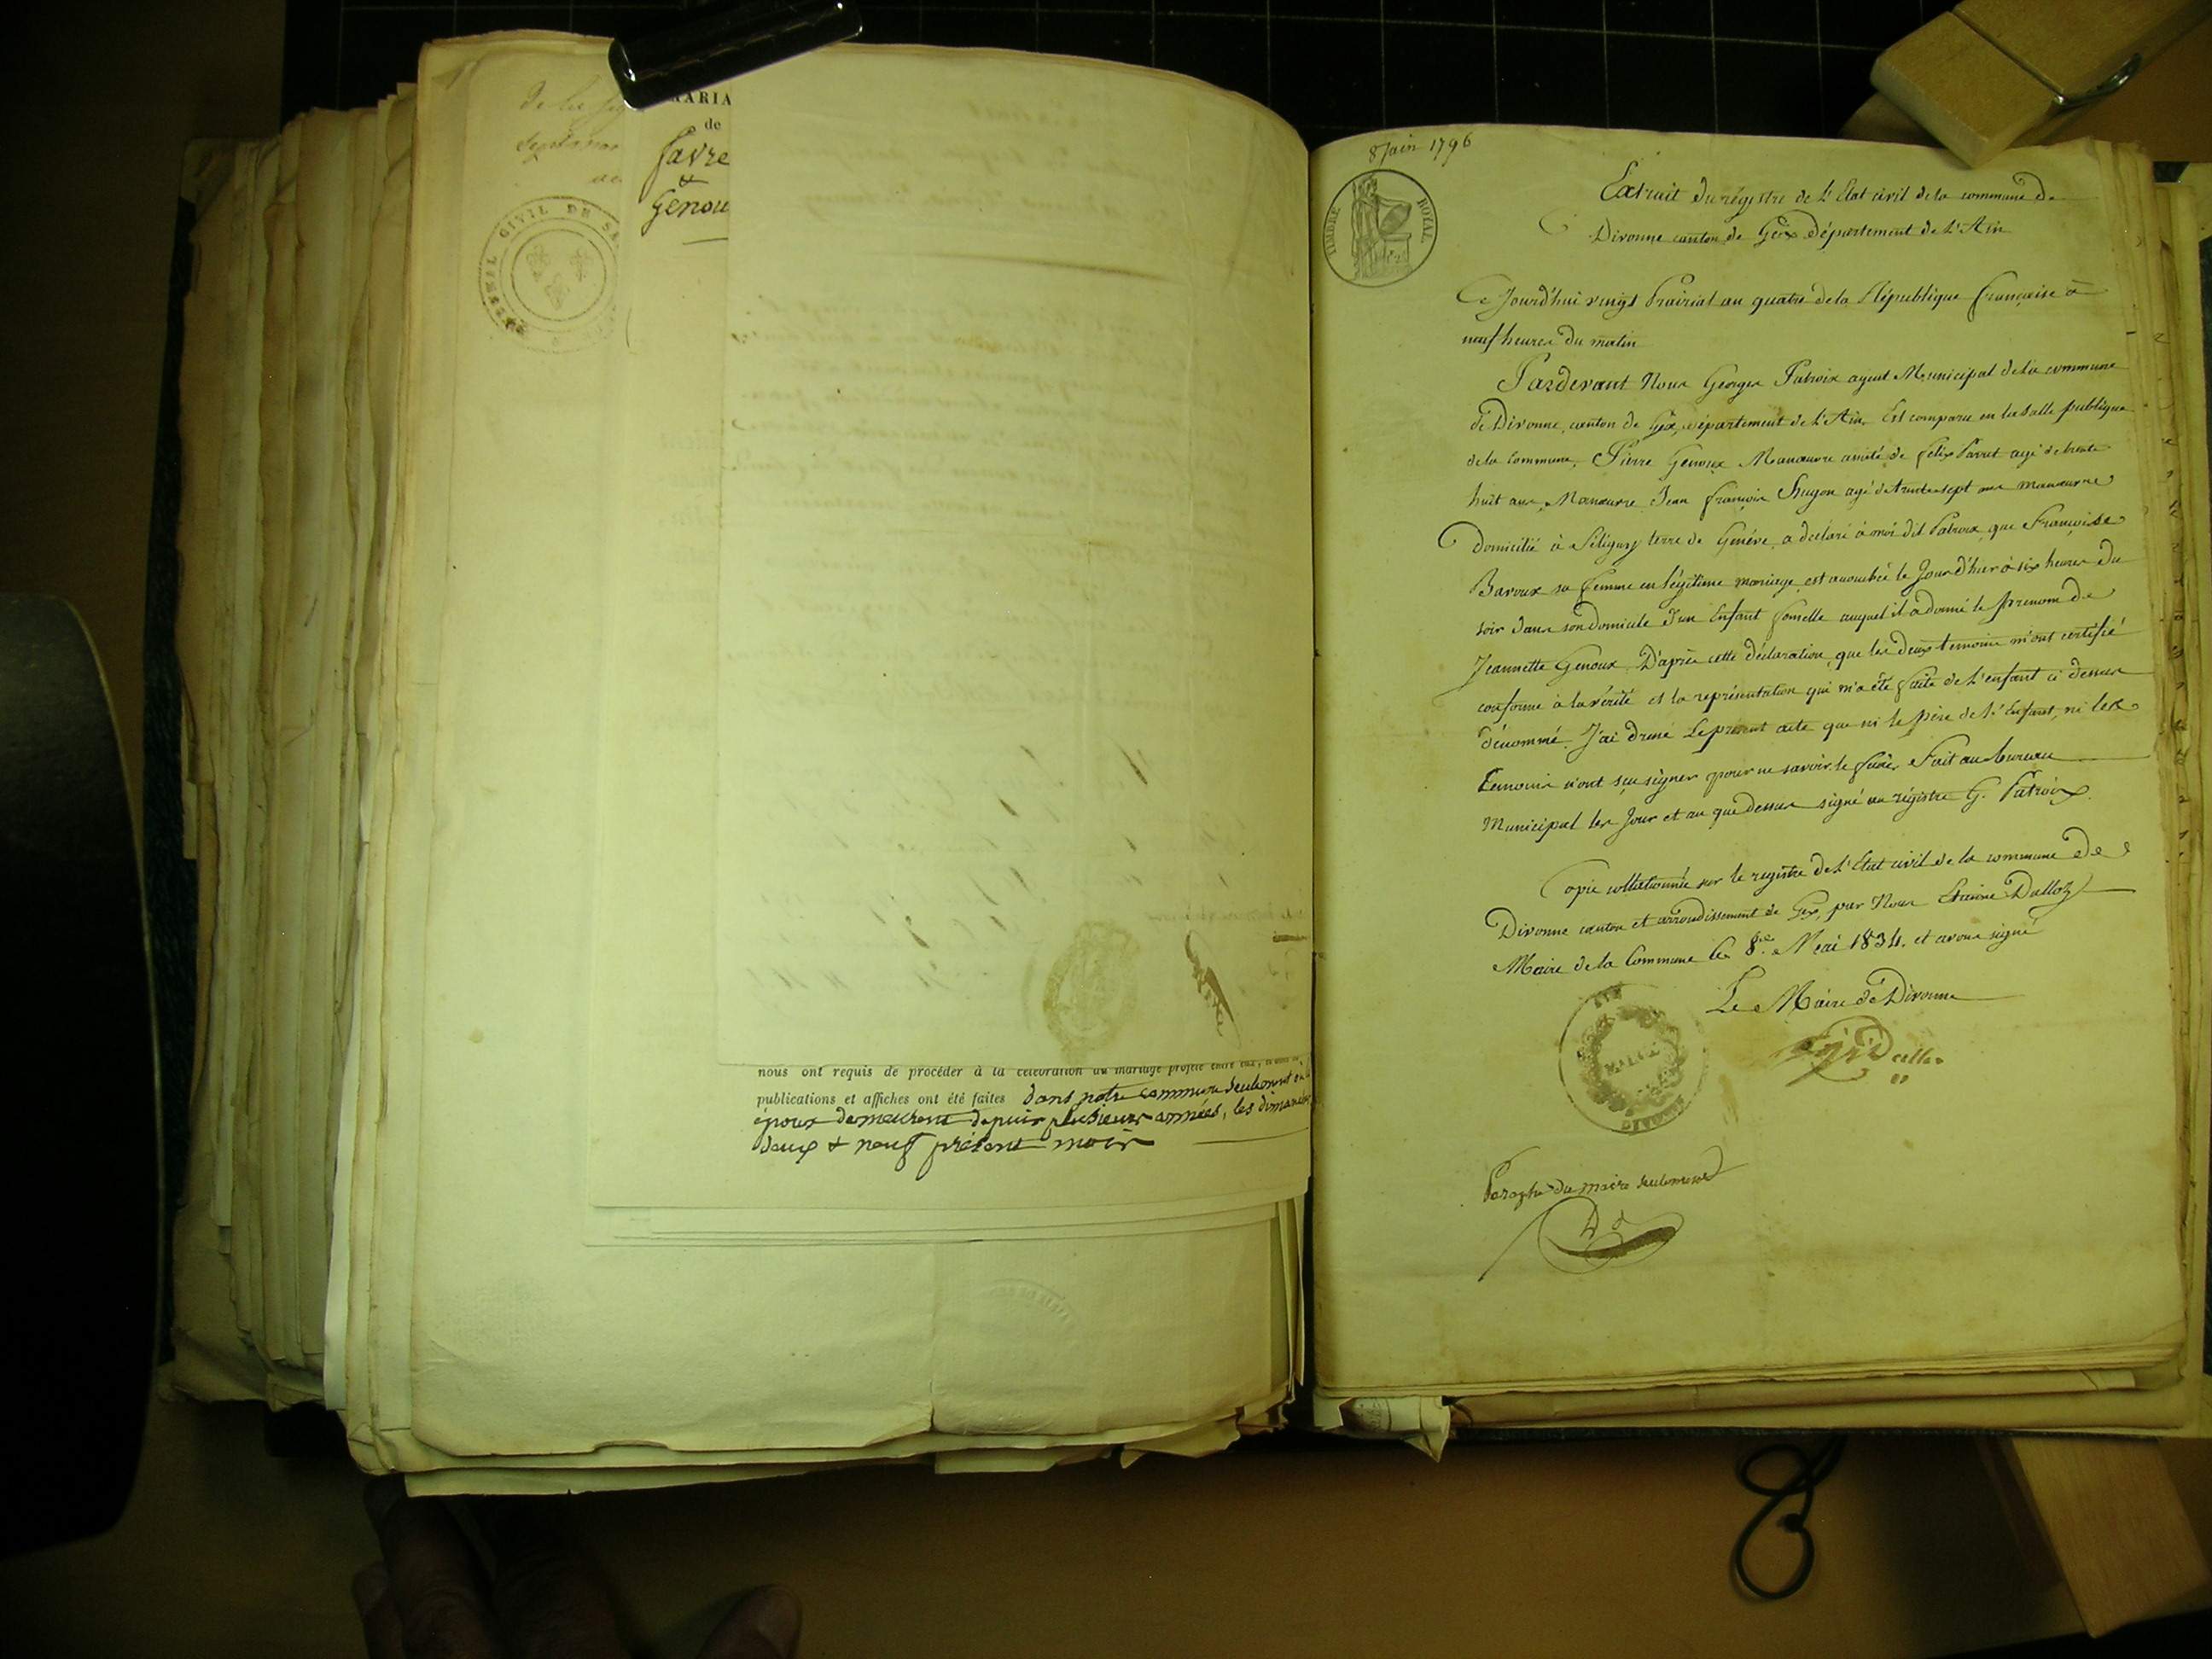 MARIA
de
Favre
&
Genou
CIVIL DE
nous ont requis de procéder à la célébration du mariage projeté entre eux,
publications et affiches ont été faites dans notre commune seulement
époux demeurent depuis plusieurs années, les dimanches
deux & neuf présent mois
8 Juin 1796
TIMBRE ROYAL
Extrait du régistre de l'Etat civil de la commune de
Divonne canton de Gex Département de l'Ain
Ce Jourd'hui vingt Prairial an quatre de la République française à
neuf heures du matin
Pardevant Nous Georges Patroix agent Municipal de la commune
de Divonne, canton de Gex, département de l'Ain, Est comparu en la salle publique
de la Commune, Pierre Genoux Manœuvre assisté de felix Parrat agé de trente
huit ans, Manœuvre Jean françois Hugon agé de trente sept ans manœuvre
Domicilié à Séligny terre de Genéve, a déclaré à moi dit Patroix que Françoise
Baroux sa femme en légitime mariage, est accouchée le Jour d'hier à six heures du
soir dans son domicile d'un Enfant femelle auquel il a donné le prenom de
Jeannette Genoux. D'après cette déclaration, que les deux temoins m'ont certifié
conforme à la vérité et la représentation qui m'a été faite de l'enfant ci dessus
dénommé. J'ai dressé le présent acte que ni le père de l'Enfant, ni les
temoins n'ont sçu signer pour ne savoir le faire, Fait au bureau
Municipal les Jour et an que dessus signé au régistre G. Patroix.
Copie collationnée sur le registre de l'Etat civil de la commune de
Divonne canton et arrondissement de Gex, par Nous Etienne Dalloz
Maire de la Commune le 8. Mai 1834. et avons signé
Le Maire de Divonne
AIN
MAIRIE
DIVONNE
Paraphe du maire seulement